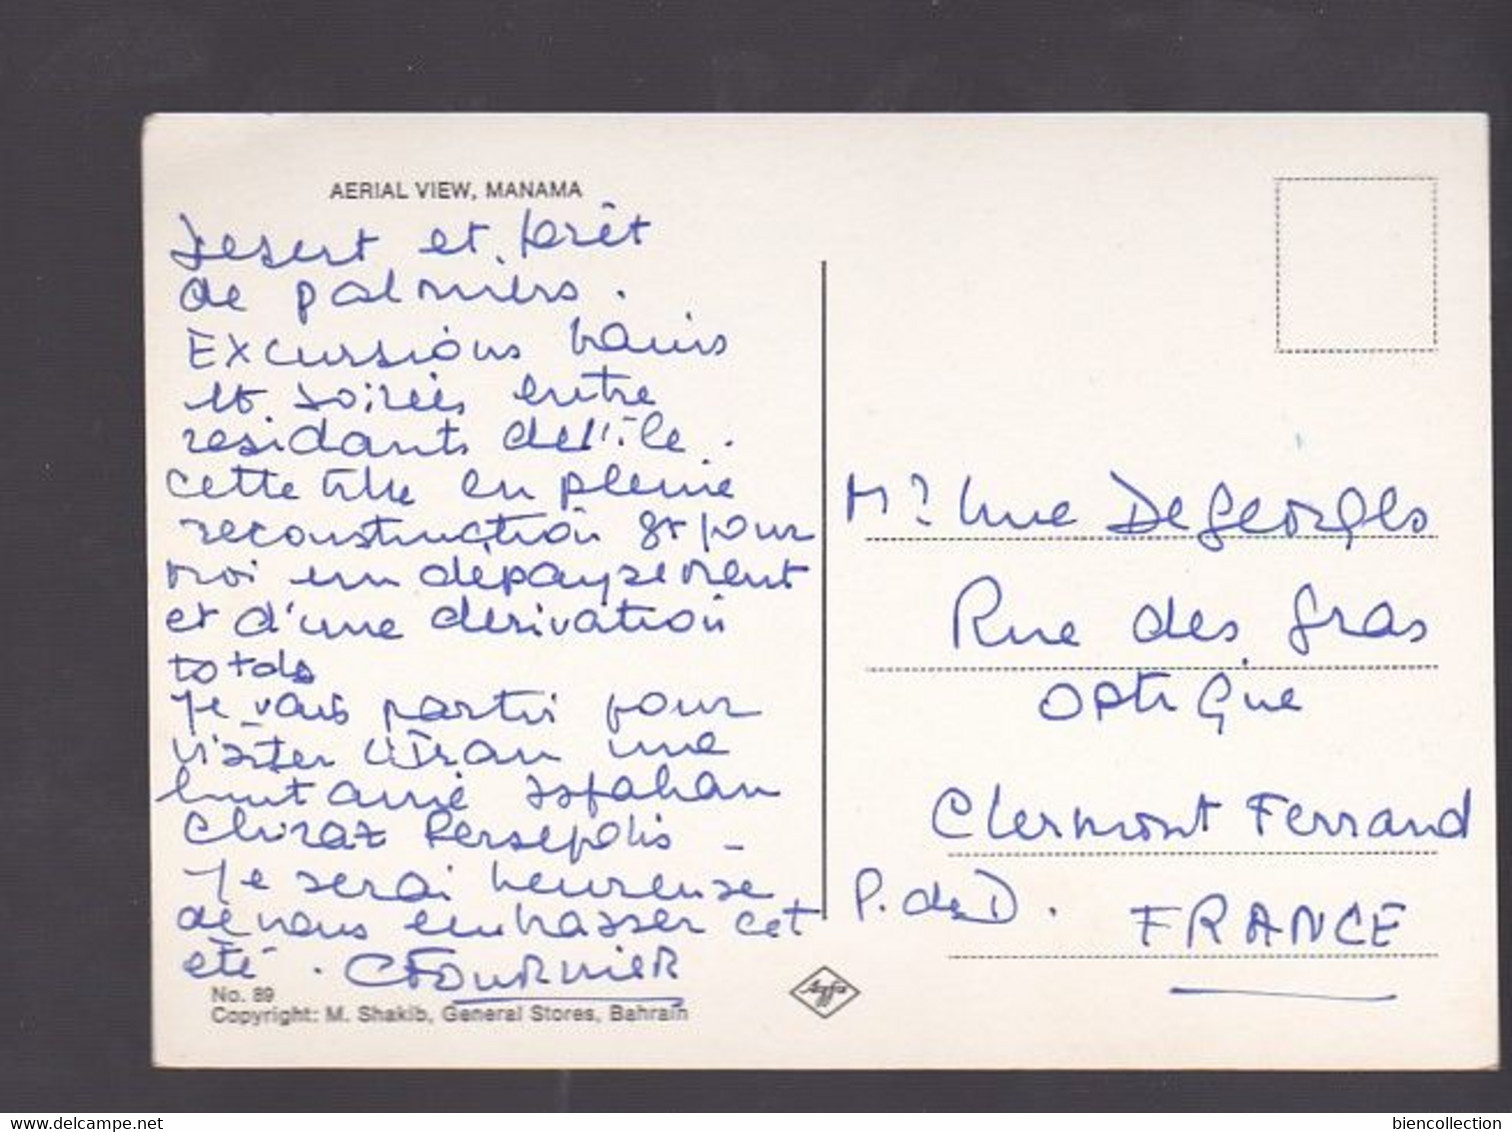 AERIAL VIEW, MANAMA
Desert et forêt
de palmiers.
Excursions bains
et soirées entre
residants de l'île.
cette ville en pleine
reconstruction est pour
moi un depaysement
et d'une derivation
totale
Je vais partir pour
visiter l'Iran une
Ispahan
Chiraz Persepolis -
Je serai heureuse
de vous embrasser cet
été. CFournier
No. 89
Copyright: M. Shakib, General Stores, Bahrain
Agfa
Mr Mme Degeorges
Rue des Gras
Optique
Clermont Ferrand
P. de D.
FRANCE
delcampe.net
biencollection